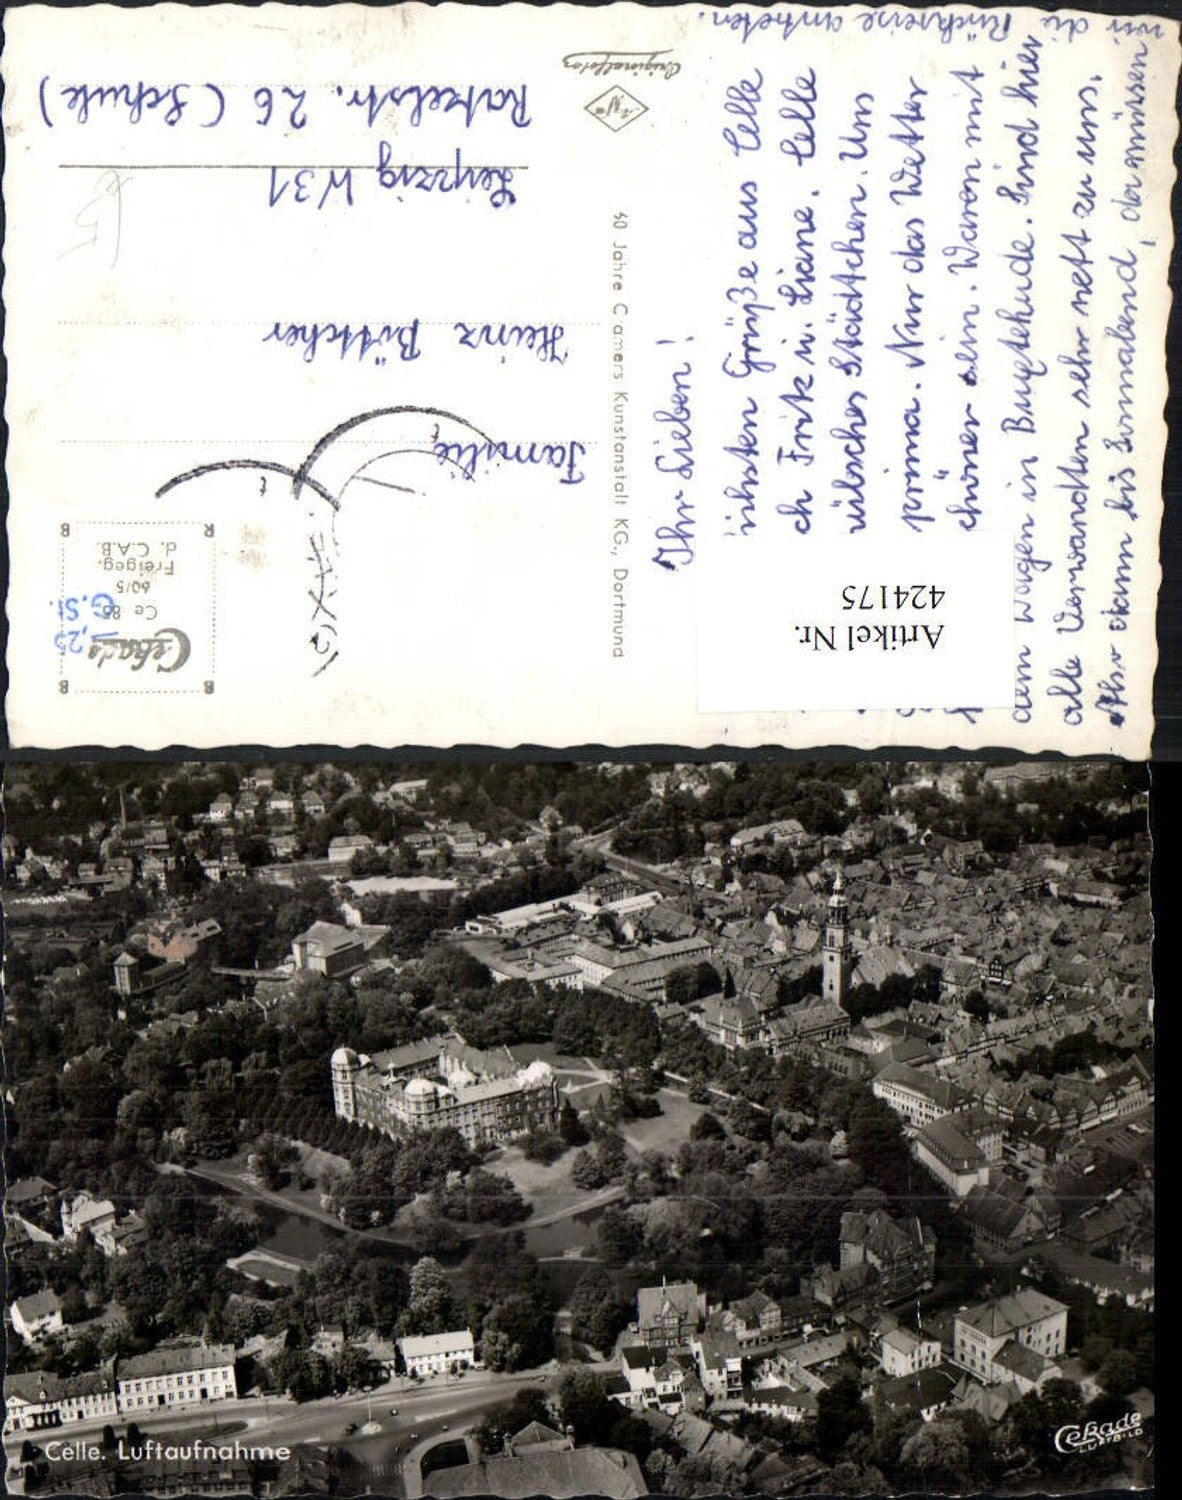 Ihr Lieben!
Grüße aus Celle
Fritz u. Liane. Celle
Städtchen. Uns
prima. Nur das Wetter
sein. Waren mit
dem Wagen in Buxtehude. Sind hier
alle Verwandten sehr nett zu uns.
dann bis Sonnabend, da müssen
wir die Rückreise antreten.
Artikel Nr.
424175
Originalfoto
50 Jahre Cramers Kunstanstalt KG., Dortmund
R B
B B
Cekade
Ce 85
60/5
Freigeg.
d. C.A.B.
-,25
G.St.
Familie
Heinz Böttcher
Leipzig W31
Ratzelstr. 26 (Schule)
Celle. Luftaufnahme
Cekade
LUFTBILD